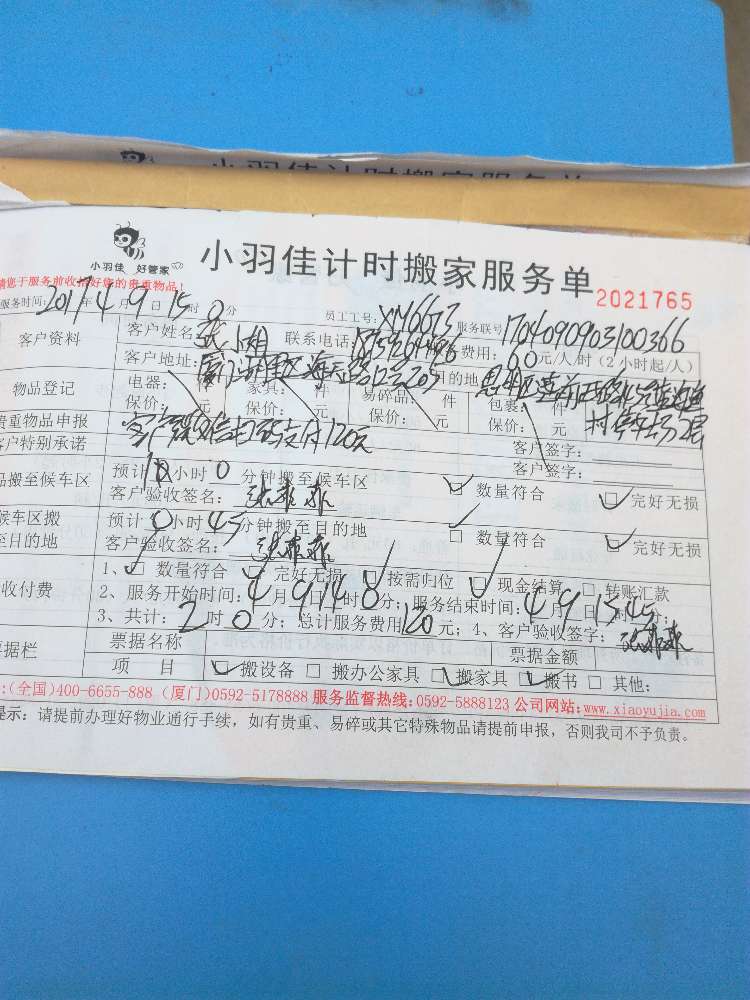 小羽佳计时搬家服务单
小羽佳 好管家
小羽佳计时搬家服务单
2021765
请您于服务前收拾好您的贵重物品!
服务时间: 2017年4月9日15时0分 员工工号: XM6673 服务联号 1704090903100366
客户资料
客户姓名: 张小姐 联系电话: 费用: 60元/人/时(2小时起/人)
客户地址: 厦门 目的地
物品登记
电器: 件 家具: 件 易碎品: 件 包裹: 件
保价: 元 保价: 元 保价: 元 保价: 元
村停车场2层
贵重物品申报 客户签字:
客户特别承诺 支付120元 客户签字:
品搬至候车区 预计 小时0分钟搬至候车区 ☑ 数量符合 ☑ 完好无损
客户验收签名:
候车区搬至目的地 预计0小时45分钟搬至目的地 ☑ 数量符合 ☑ 完好无损
客户验收签名:
收付费
1、☑ 数量符合 ☑ 完好无损 ☑ 按需归位 ☑ 现金结算 □ 转账汇款
2、服务开始时间: 4月9日14时0分; 服务结束时间: 4月9日15时45分;
3、共计: 2时0分; 总计服务费用120元; 4、客户验收签字:
票据栏 票据名称 票据金额
项 目 ☑ 搬设备 □ 搬办公家具 ☑ 搬家具 ☑ 搬书 □ 其他:
:(全国)400-6655-888 (厦门)0592-5178888 服务监督热线:0592-5888123 公司网站:www.xiaoyujia.com
提示: 请提前办理好物业通行手续, 如有贵重、易碎或其它特殊物品请提前申报, 否则我司不予负责。